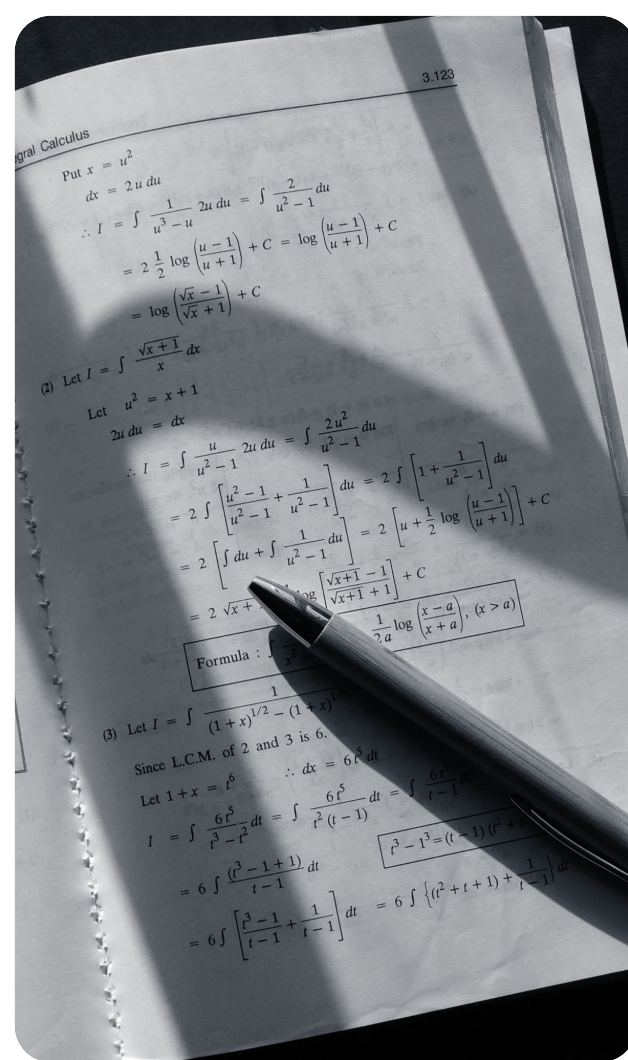 3.123
gral Calculus
Put x = u²
dx = 2u du
∴ I = ∫ 1/(u³ − u) 2u du = ∫ 2/(u² − 1) du
= 2 1/2 log ((u − 1)/(u + 1)) + C = log ((u − 1)/(u + 1)) + C
= log ((√x − 1)/(√x + 1)) + C
(2) Let I = ∫ √(x + 1)/x dx
Let u² = x + 1
2u du = dx
∴ I = ∫ u/(u² − 1) 2u du = ∫ 2u²/(u² − 1) du
= 2 ∫ [(u² − 1)/(u² − 1) + 1/(u² − 1)] du = 2 ∫ [1 + 1/(u² − 1)] du
= 2 [∫ du + ∫ 1/(u² − 1) du] = 2 [u + 1/2 log ((u − 1)/(u + 1))] + C
= 2 √x + log [(√(x+1) − 1)/(√(x+1) + 1)] + C
Formula : ∫ 1/2a log ((x − a)/(x + a)), (x > a)
(3) Let I = ∫ 1/((1 + x)^1/2 − (1 + x)^1/
Since L.C.M. of 2 and 3 is 6.
Let 1 + x = t⁶ ∴ dx = 6t⁵ dt
I = ∫ 6t⁵/(t³ − t²) dt = ∫ 6t⁵/(t² (t − 1)) dt = ∫ 6t/(t − 1)
= 6 ∫ (t³ − 1 + 1)/(t − 1) dt t³ − 1³ = (t − 1) (t² +
= 6 ∫ [(t³ − 1)/(t − 1) + 1/(t − 1)] dt = 6 ∫ {(t² + t + 1) + 1/(t − 1)} dt